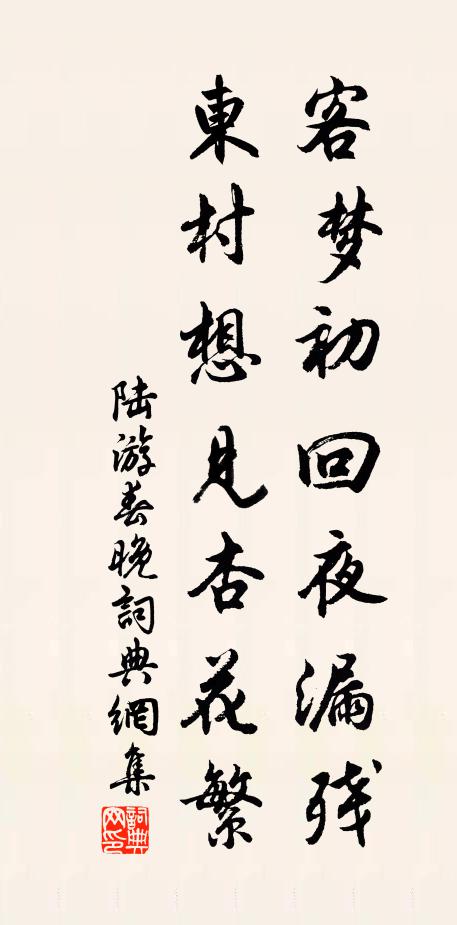 客梦初回夜漏残
東村想見杏花繁
陆游春晚詞典網集
詞典
网印